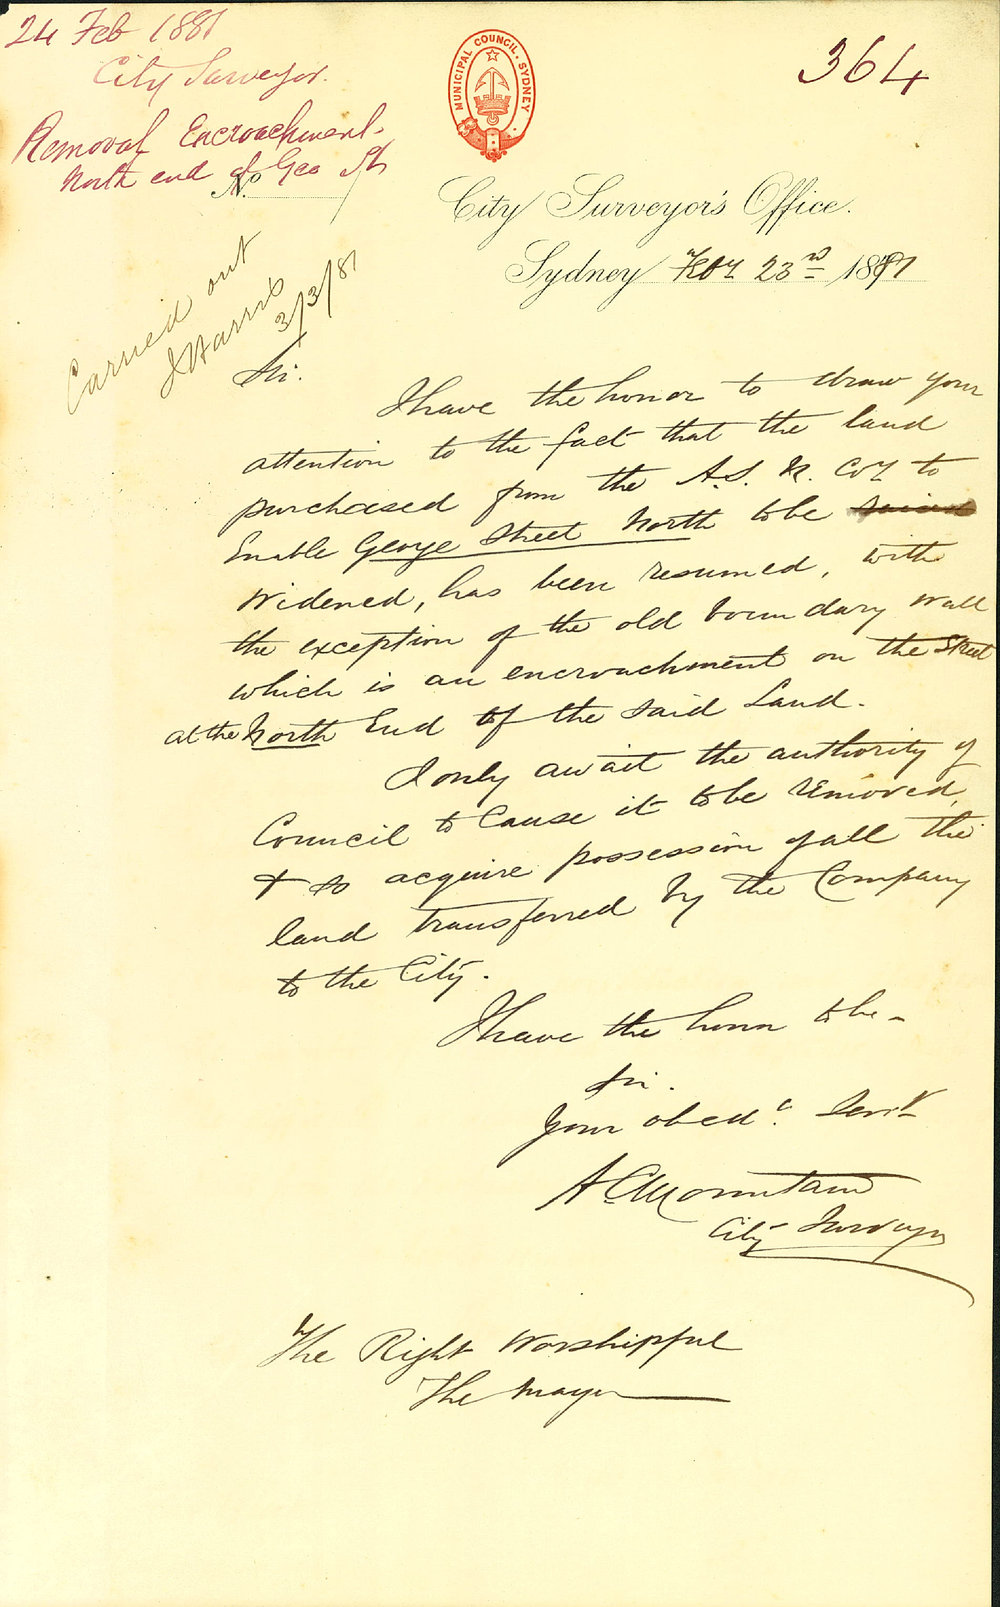 24 Feb 1881
City Surveyor.
Removal Encroachment.
North end of Geo St
No
364
MUNICIPAL COUNCIL. SYDNEY
City Surveyor's Office.
Sydney Feby 23rd 1881
Carried out
J Harris
3/3/81
Sir.
I have the honor to draw your
attention to the fact that the land
purchased from the A.S.N. Coy to
Enable George Street North to be
Widened, has been resumed, with
the exception of the old boundary wall
which is an encroachment on the Street
at the North End of the said Land.
I only await the authority of
Council to Cause it to be removed,
& so acquire possession of all the
land transferred by the Company
to the City.
I have the honor to be -
Sir.
Your obedt. Servt
A C Mountain
City Surveyor
The Right Worshipful
The Mayor